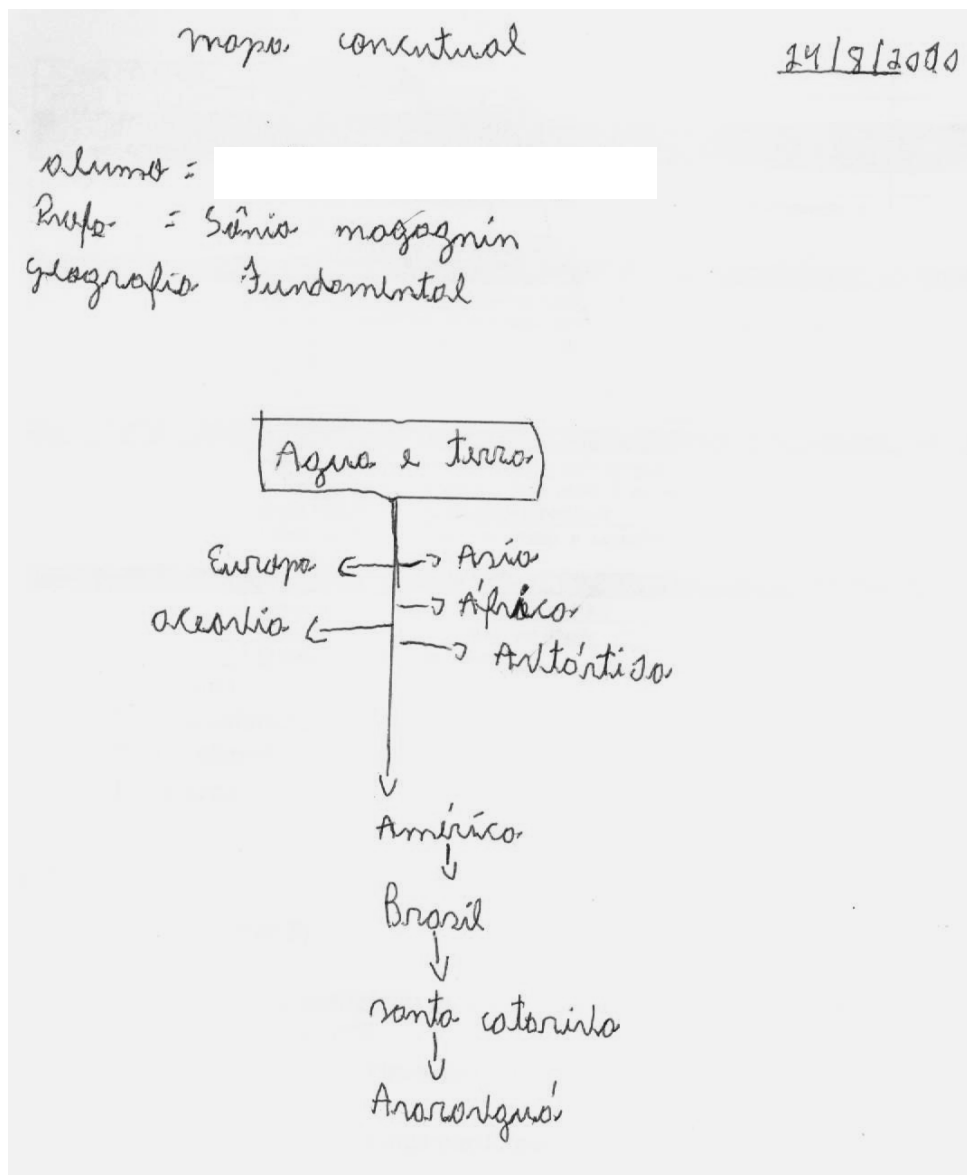 mapa concentual
24/8/2010
aluno =
Profa = Sânia magagnin
geografia Fundamental
Agua e terra
Europa Asia
África
oceania
Antártida
América
Brasil
santa catarina
Araranguá